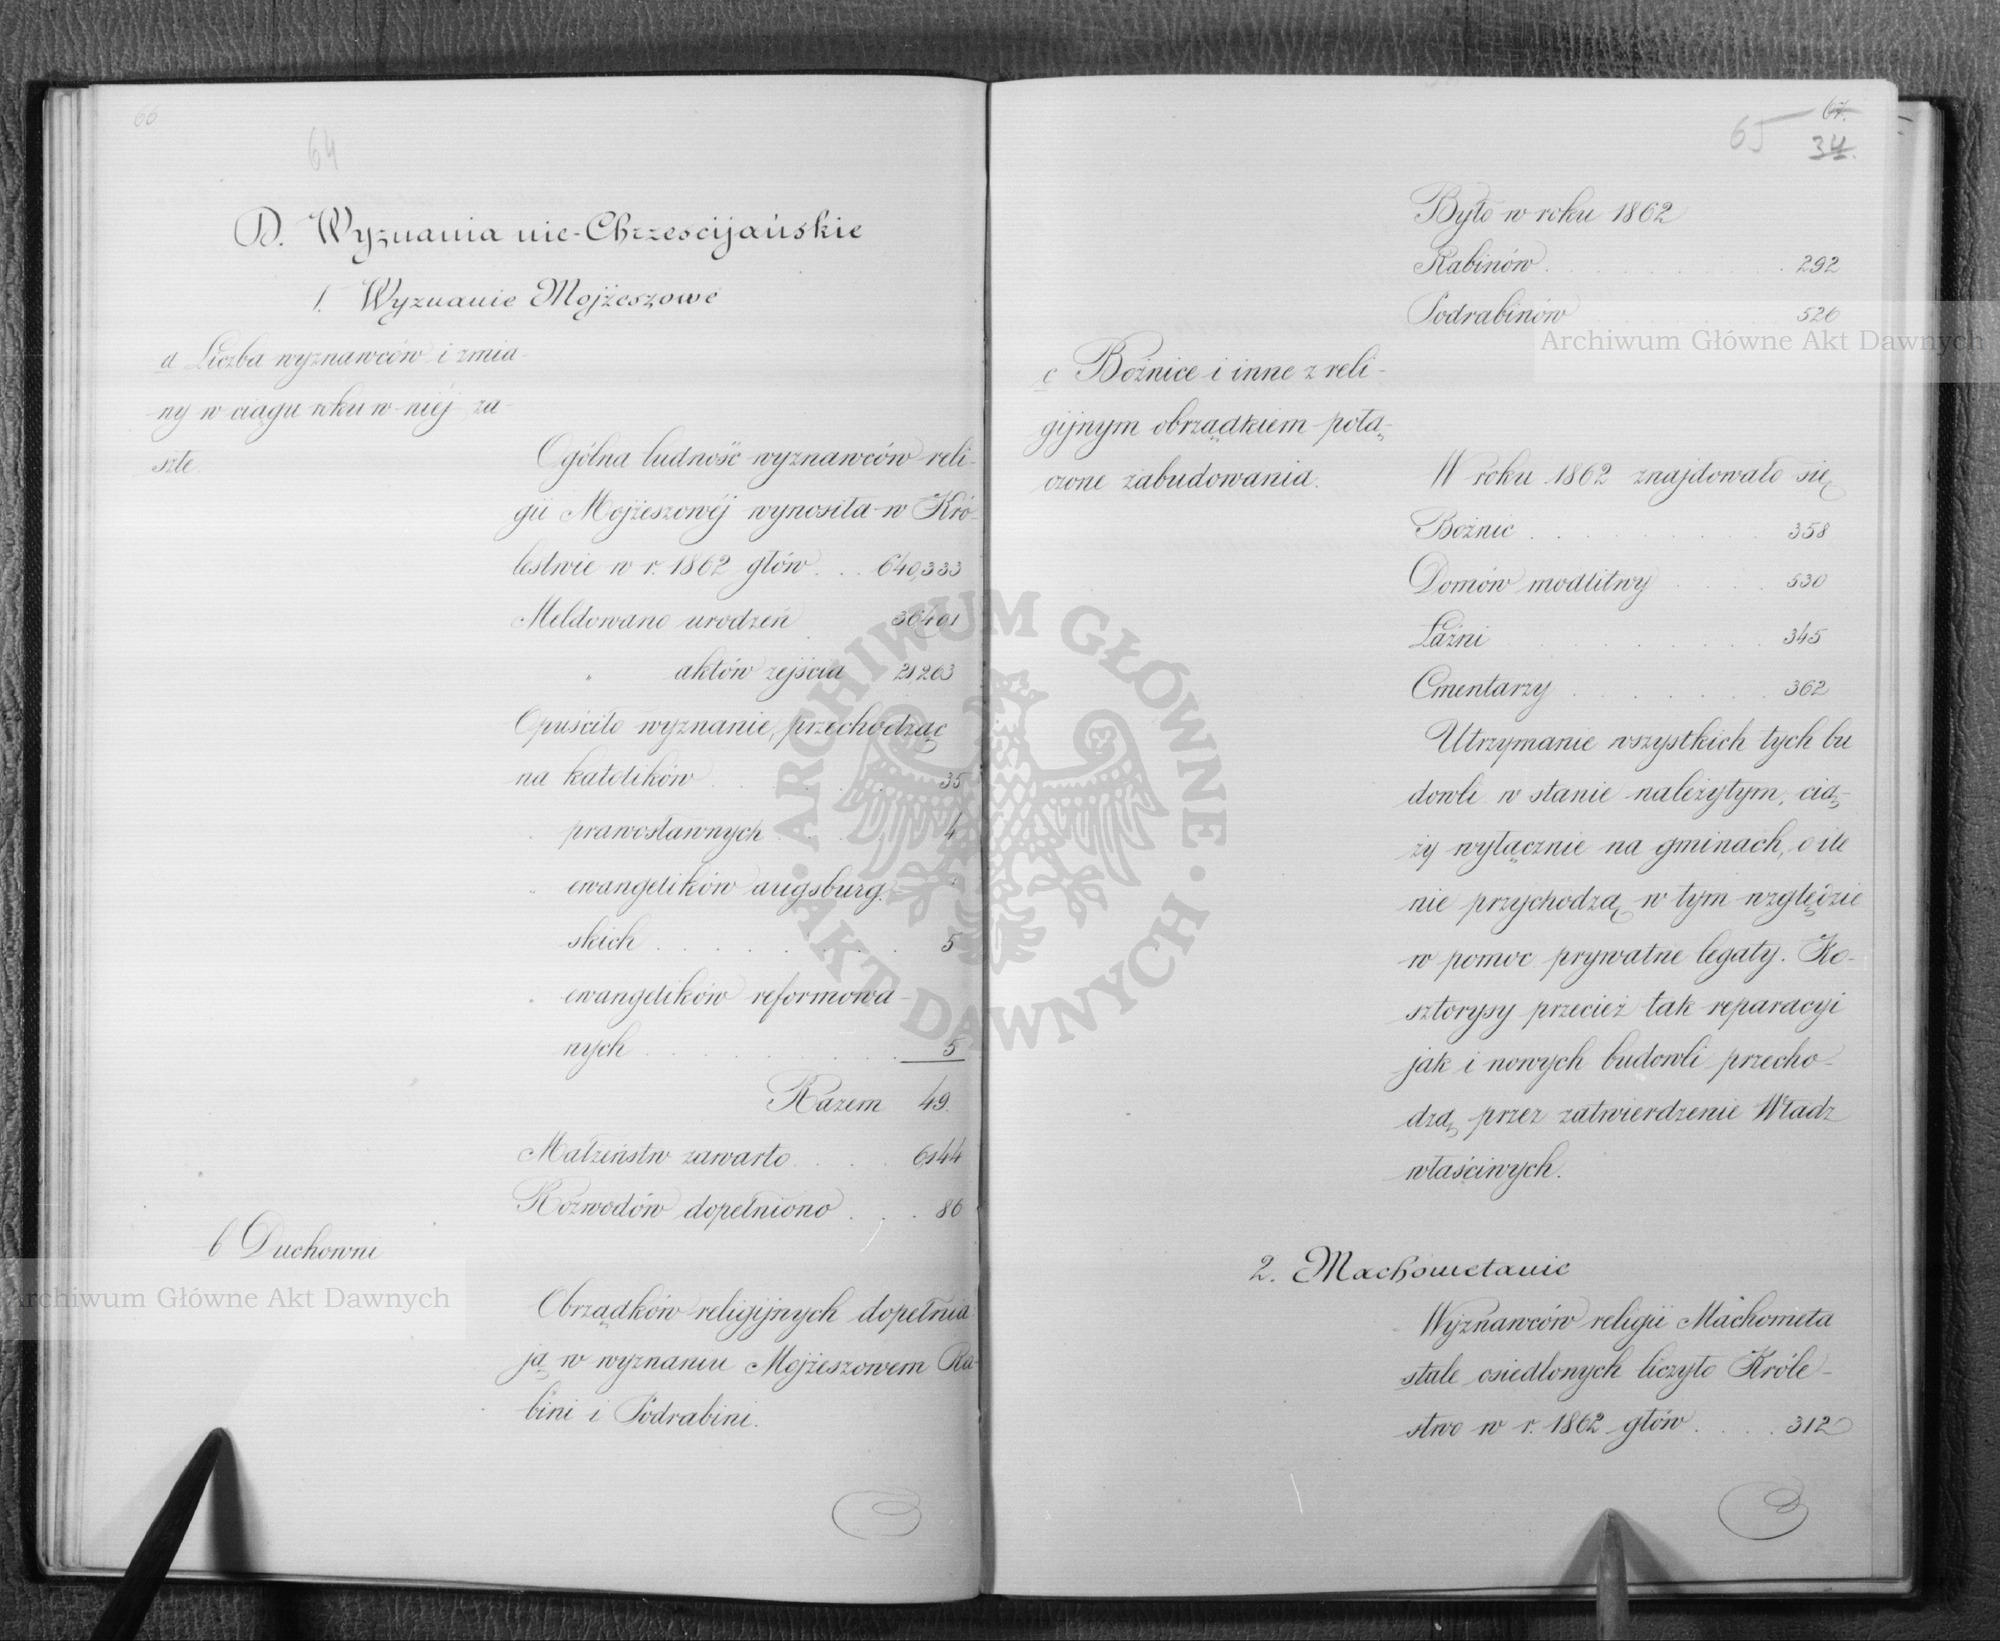 66
64
D. Wyznania nie-Chrzescijańskie
1. Wyznanie Mojżeszowe
a Liczba wyznawców i zmia-
ny w ciągu roku w niéj za-
szłe.
Ogólna ludność wyznawców reli-
gii Mojżeszowéj wynosiła w Kró-
lestwie w r. 1862 głów . . . 640,333
Meldowano urodzeń 36,491
" aktów zejścia 21,263
Opuściło wyznanie, przechodząc
na katolików . . . . 35
" prawosławnych . . . . 4
" ewangelików augsburg-
skich . . . . . . . . 5
" ewangelików reformowa-
nych . . . . . . . . 5
Razem 49.
Małżeństw zawarto . . . . 6,144
Rozwodów dopełniono . . . 86
b Duchowni
Obrządków religijnych dopełnia-
ją w wyznaniu Mojżeszowem Ra-
bini i Podrabini.
65
67.
34.
Było w roku 1862
Rabinów . . . . . . . 292
Podrabinów 526
c Bożnice i inne z reli-
gijnym obrządkiem połą-
czone zabudowania.
W roku 1862 znajdowało się
Bożnic . . . . . . . . 358
Domów modlitwy . . . . 530
Łaźni . . . . . . . . 345
Cmentarzy . . . . . . . 362
Utrzymanie wszystkich tych bu
dowli w stanie należytym, cią-
ży wyłącznie na gminach, o ile
nie przychodzą w tym względzie
w pomoc prywatne legaty. Ko-
sztorysy przecież tak reparacyi
jak i nowych budowli przecho-
dzą przez zatwierdzenie Władz
właściwych.
2. Machometanie
Wyznawców religii Machometa
stale osiedlonych liczyło Króle-
stwo w r. 1862 głów . . . . 312
Archiwum Główne Akt Dawnych
Archiwum Główne Akt Dawnych
ARCHIWUM GŁÓWNE · AKT DAWNYCH ·